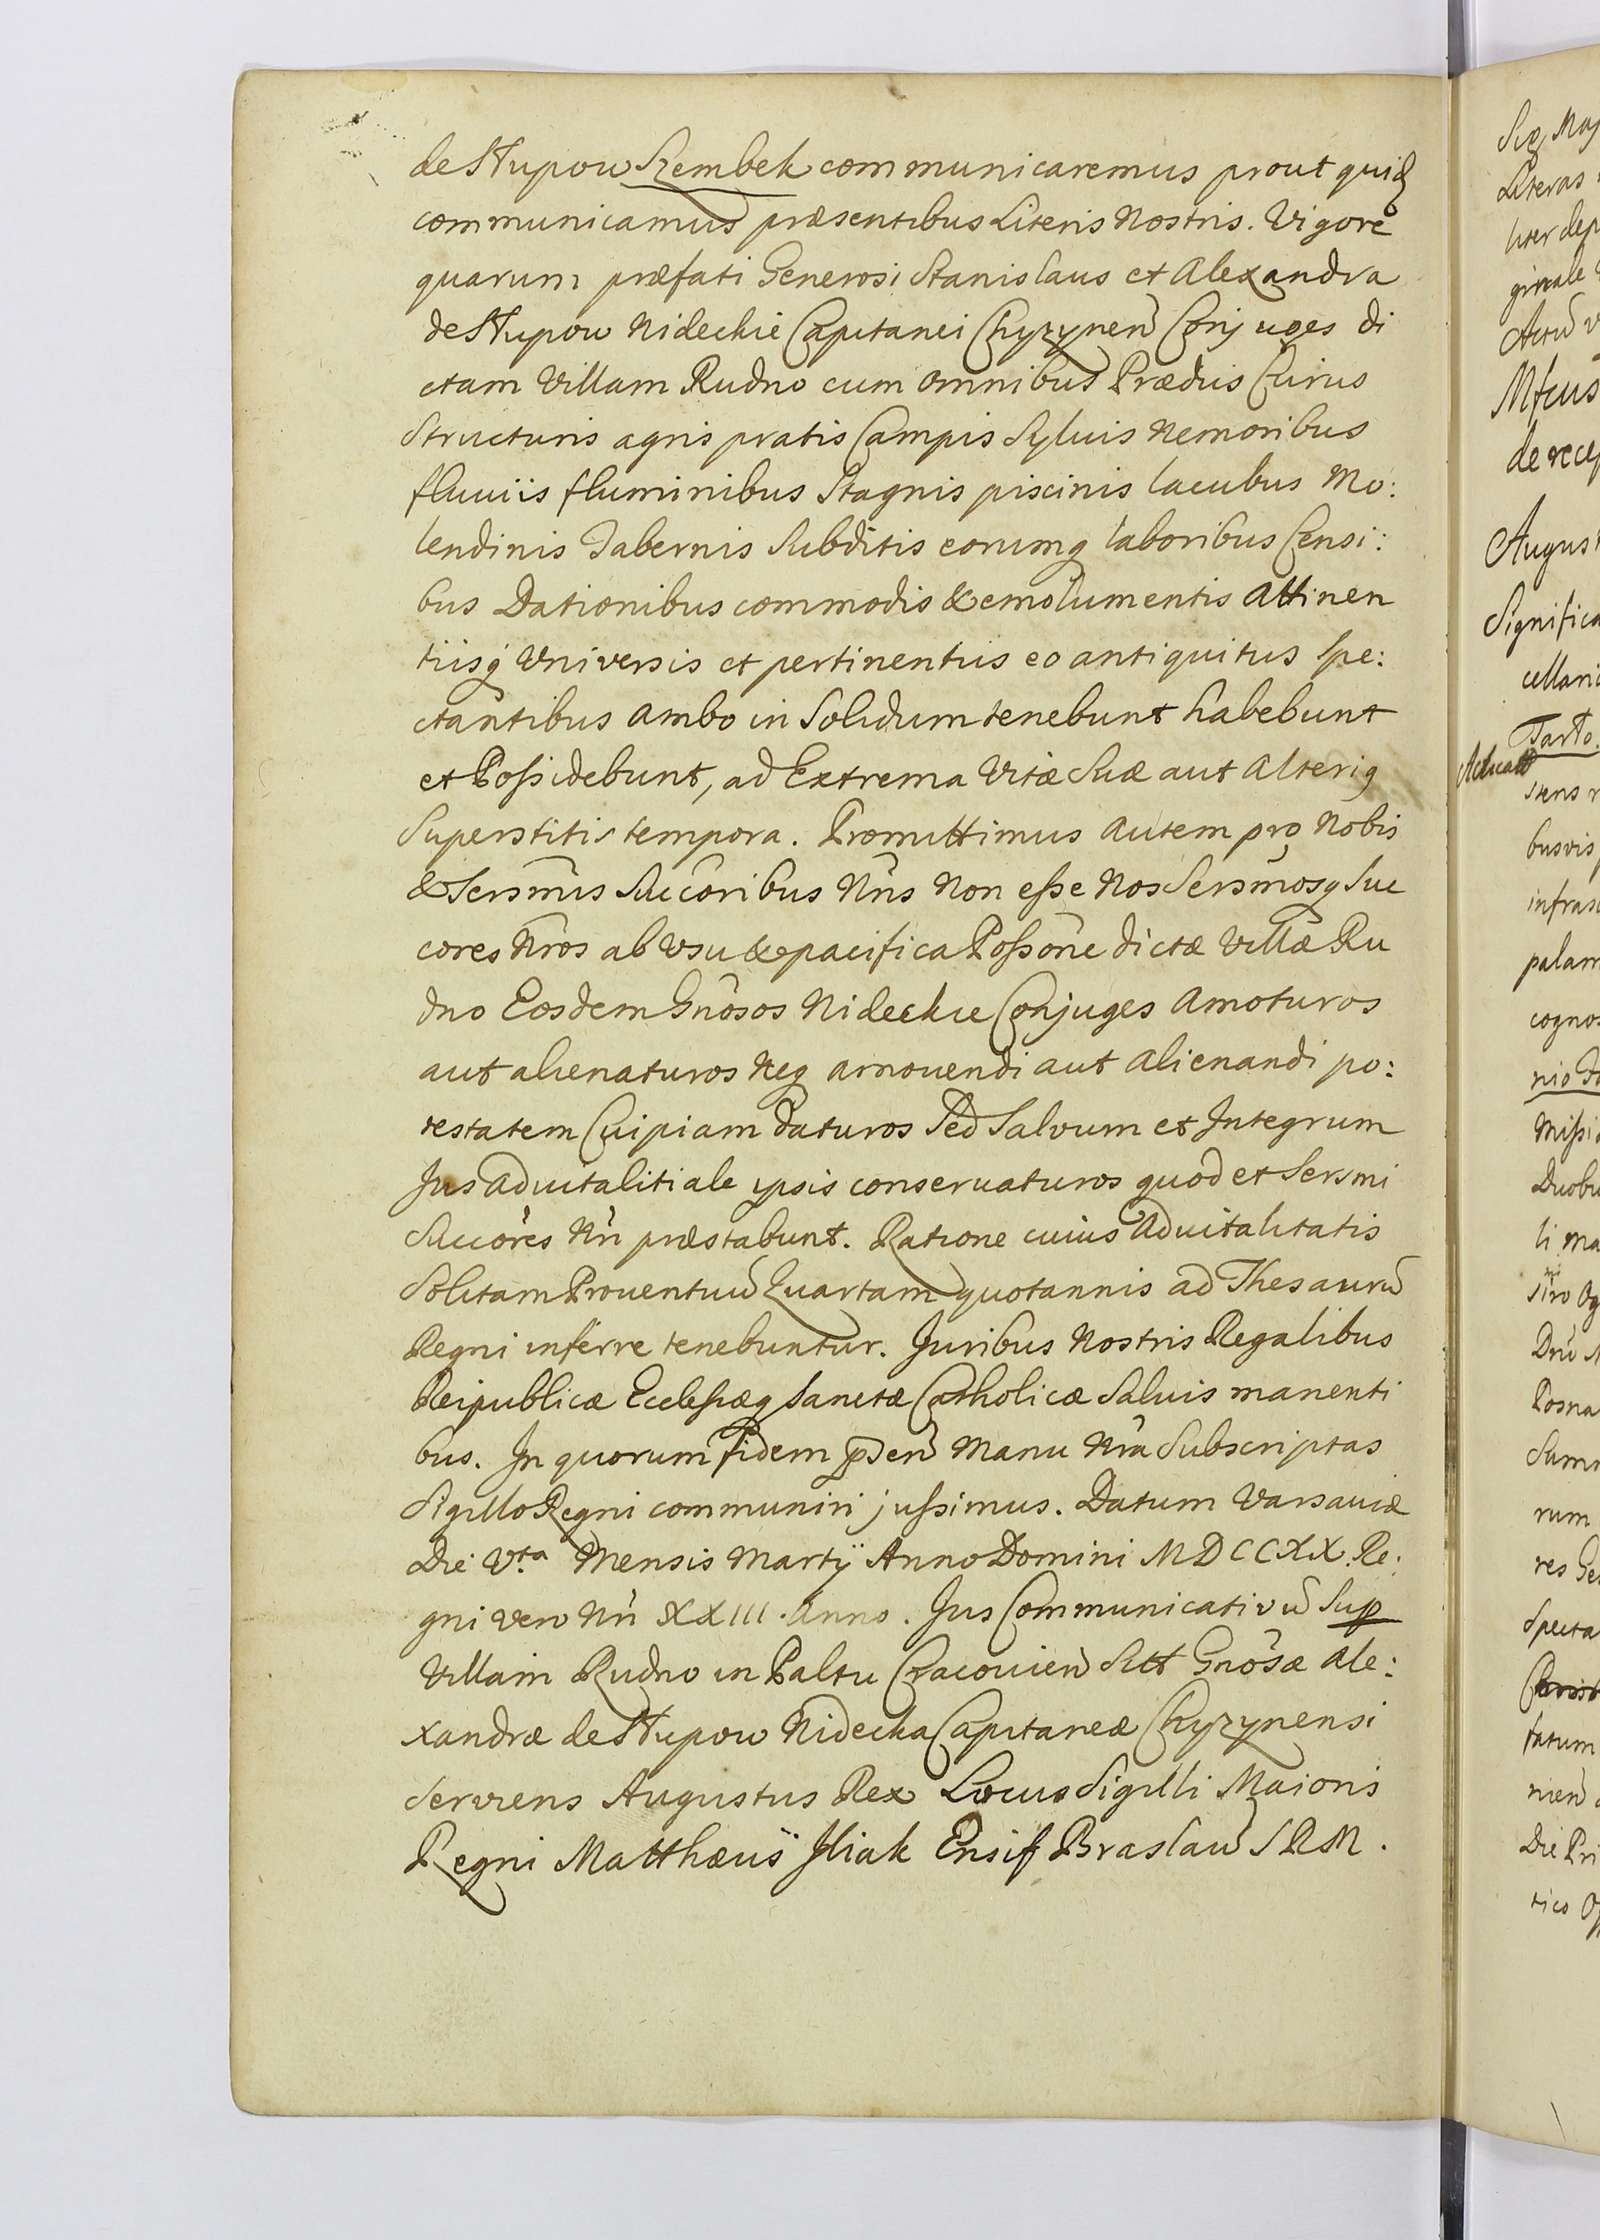 de Słupow Szembek communicaremus prout quidē
communicamus præsentibus Literis Nostris. Vigore
quarum præfati Generosi Stanislaus et Alexandra
de Słupow Nideckie Capitanei Chyzynen̄ Conjuges di
ctam Villam Rudno cum omnibus Prædiis Curiis
Structuris agris pratis Campis Syluis Nemoribus
fluuiis fluminibus Stagnis piscinis lacubus Mo:
lendinis Tabernis Subditis eorumq laboribus Censi:
bus Dationibus commodis & emolumentis Attinen
tiisq́ Vniversis et pertinentiis eo antiquitus Spe:
ctantibus ambo in Solidum tenebunt habebunt
et Possidebunt, ad Extrema Vitæ Suæ aut Alteriq
Superstitis tempora. Promittimus autem pro Nobis
& Sersmis Succoribus Nr̄is Non esse Nos Sersmosq Suc
cores Nr̄os ab Vsu & pacifica Possōne dictæ Villæ Ru
dno Eosdem Gnōsos Nideckie Conjuges Amoturos
aut alienaturos Neq amouendi aut Alienandi po:
testatem Cuipiam daturos Sed Salvum et Integrum
Jus aduitalitiale ipsis conseruaturos quod et Sersmi
Succōres Nr̄i præstabunt. Ratione cuius Aduitalitatis
Solitam Prouentuū Quartam quotannis ad Thesaurū
Regni inferre tenebuntur. Juribus Nostris Regalibus
Reipublicæ Ecclesiæq Sanctæ Catholicæ Saluis manenti
bus. In quorum fidem p̄sen̄ Manu Nr̄a Subscriptas
Sigillo Regni communiri jussimus. Datum Varsauiæ
Die V.ta Mensis Martij Anno Domini MDCCXX. Re:
gni Vero Nr̄i XXIII. Anno. Jus Communicativū Sup
Villam Rudno in Paltu Cracouien̄ Sitt Gnōsæ Ale:
xandræ de Słupow Nidecka Capitaneæ Chyzynensi
Serviens Augustus Rex Locus Sigilli Maioris
Regni Matthæus Iliak Ensif Braslaū SRM.
Augus
Significa
de recep
infras
palam
cognos
Duobu
rum